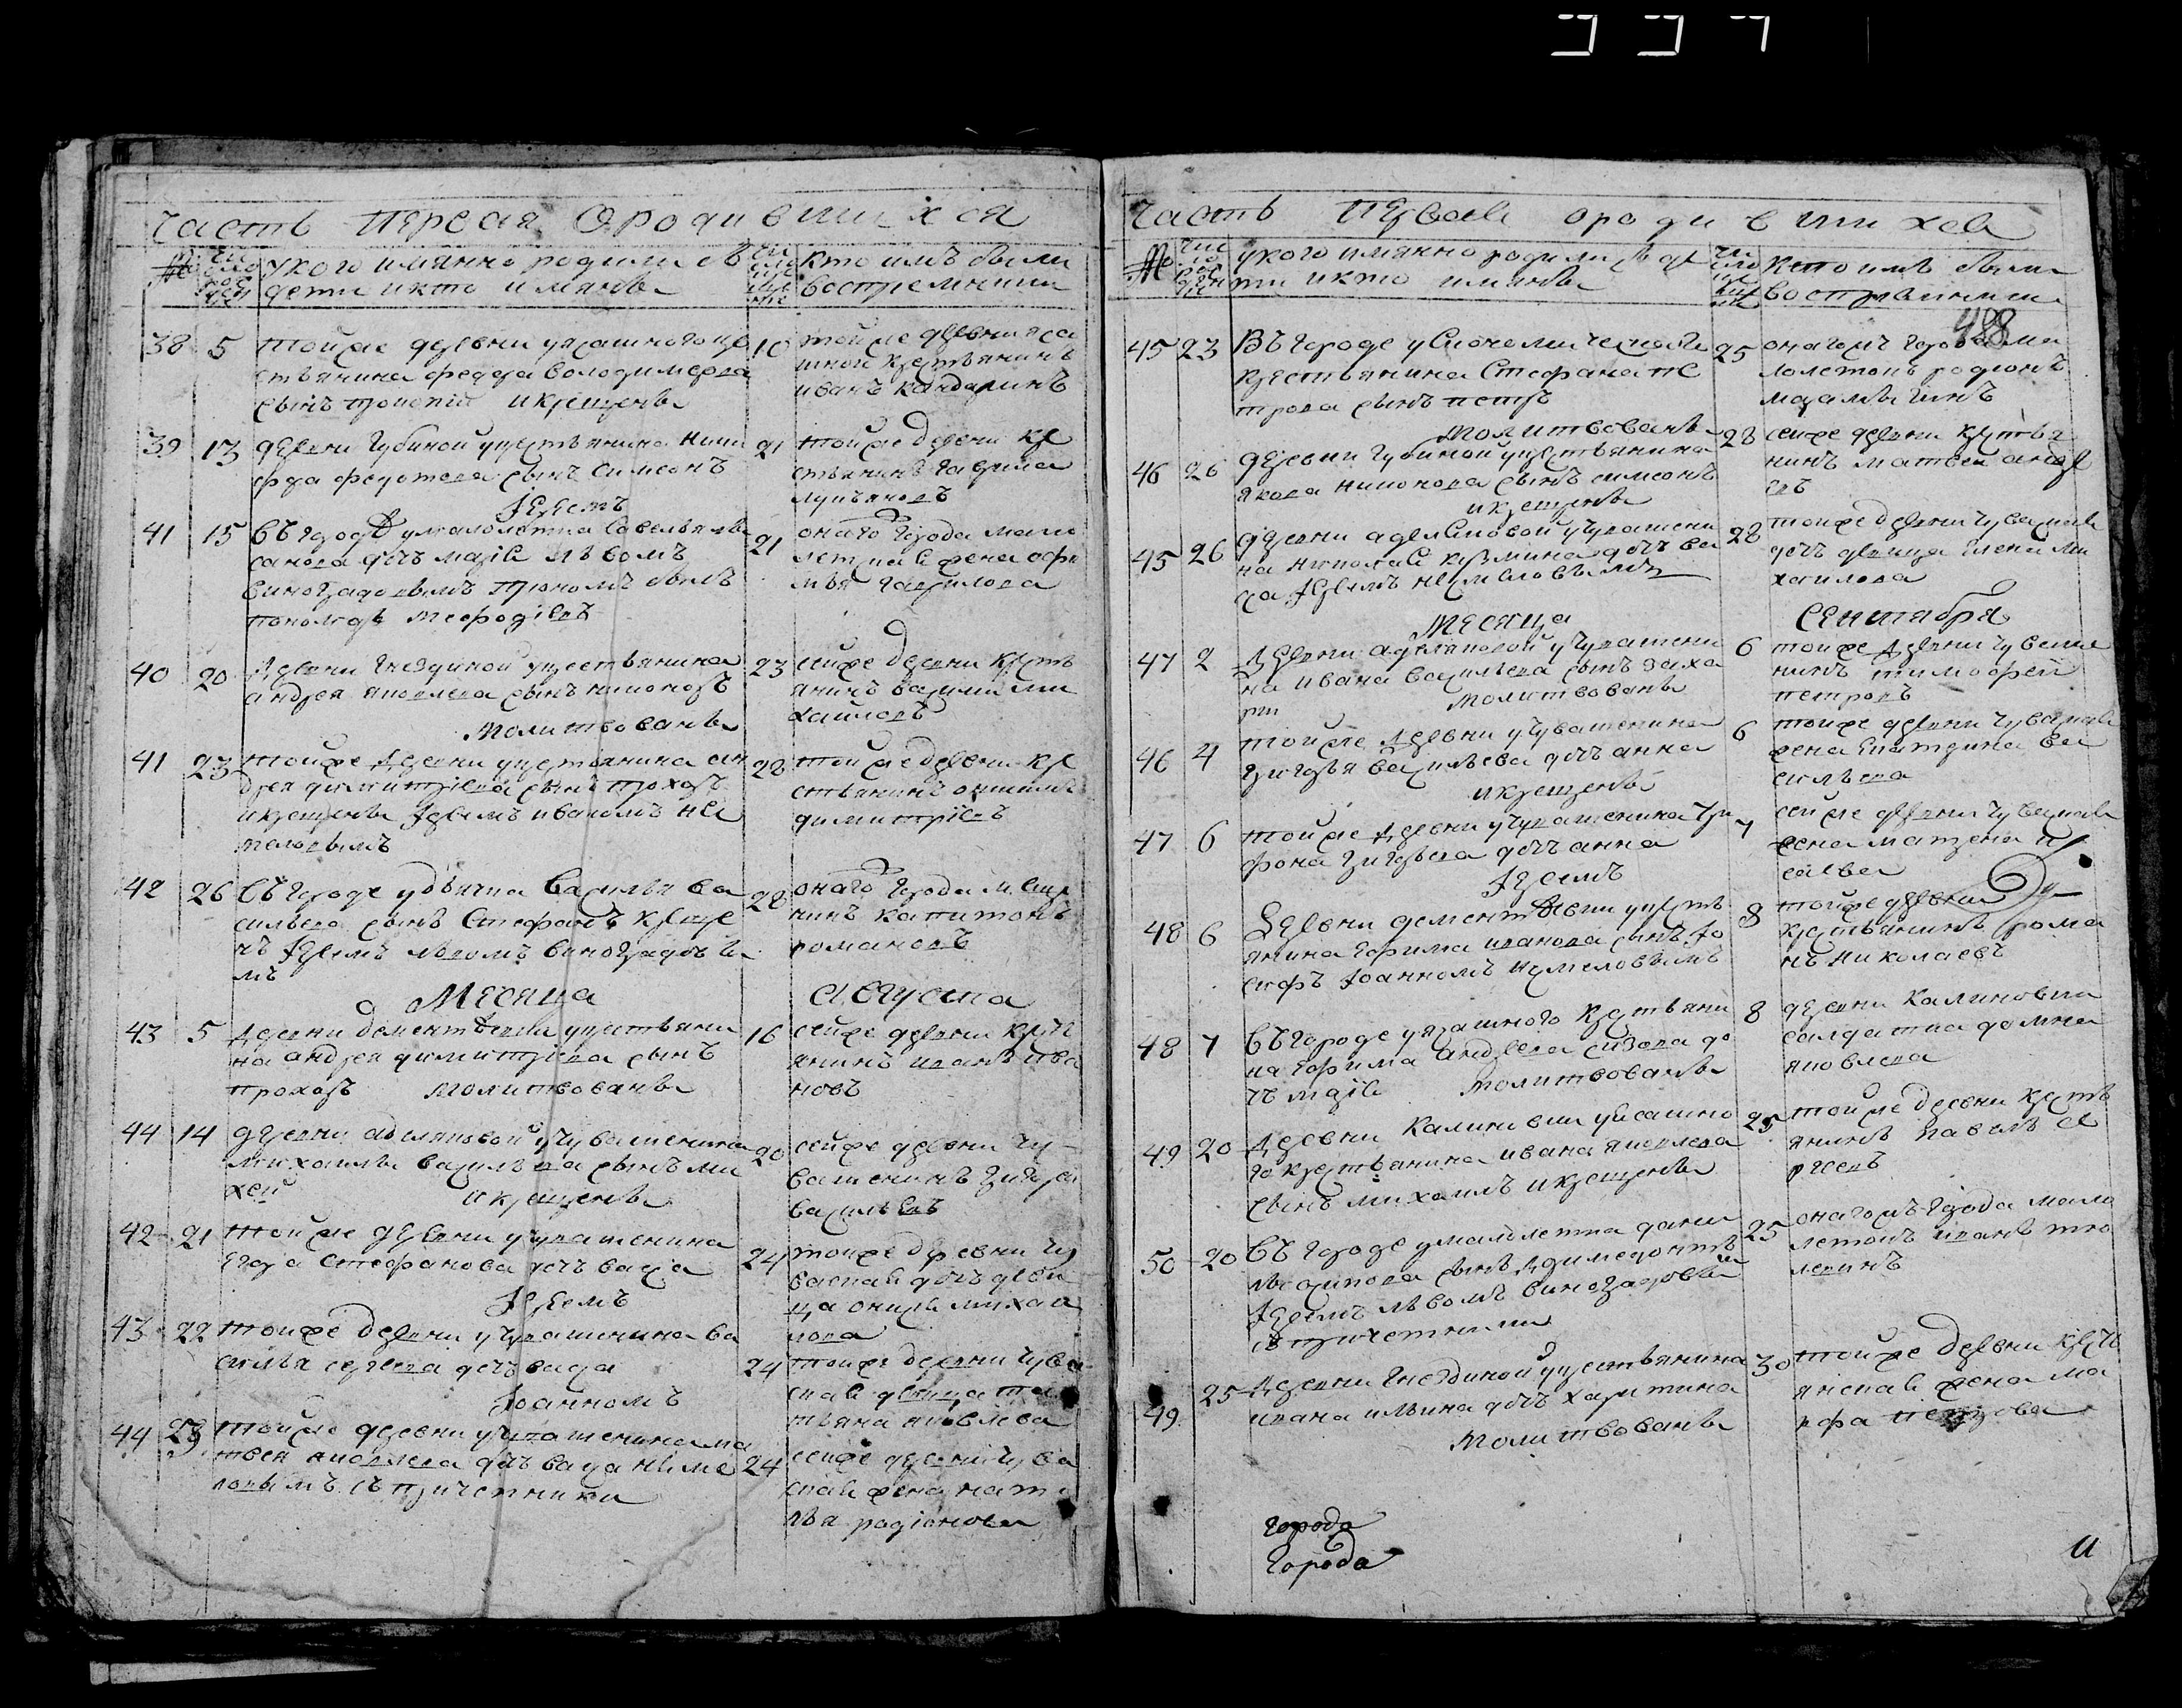 часть первая о родившихся
№
число рожденiе
у кого имянно родились
дети и кто имяны
число крещенiе
кто имъ были
воспрiемники
38 5
тойже деревни у ясашного кре
стьянина федора володимерова
сынъ прокопiй и крещены
10
тойже деревни яса
шной крестьянинъ
иванъ кандалинъ
39 13
деревни Губиной у крестьянина ники
фора федотова сынъ симеонъ
Iереемъ
21
тойже деревни кре
стьянинъ гаврила
лукъяновъ
41 15
въ городѣ у малолетка савелья
санова дочъ марiя львомъ
виноградовымъ при ономъ былъ
пономарь мефодiевъ
21
онаго города мало
летка жена офи
мья гаврилова
40 20
деревни Гнездиной у крестьянина
андрея яковлева сынъ никоноръ
молитвованы
23
сейже деревни кресть
янинъ василий ми
хайловъ
41 23
тойже деревни у крестьянина ан
дрея димитрiева сынъ прохоръ
и крещены Iереемъ иваномъ не
меловымъ
28
тойже деревни кре
стьянинъ
димитрiевъ
42 26
въ городе у дьячка василья ва
сильева сынъ Стефанъ креще
нъ Iереемъ львомъ виноградовы
мъ
28
онаго города мещя
нинъ капитонъ
романовъ
Месяца августа
43 5
деревни дементѣевки у крестьяни
на андрея димитрiева сынъ
прохоръ молитвованы
16
сейже деревни крест
янинъ иванъ ива
новъ
44 14
деревни аделяковой у чувашенина
михаилы васильева сынъ ми
хей и крещены
20
сейже деревни чу
вашенинъ григорей
васильевъ
42 21
тойже деревни у чувашенина
егора стефанова дочъ васса
Iереемъ
24
тойже деревни чу
васкай дочъ деви
ца михаи
лова
43 22
тойже деревни у чувашенина ва
силья сергеева дочъ васса
Iоанномъ
24
тойже деревни чува
скай девица тать
тьяна яковлева
44 23
тойже деревни у чувашенина ма
твея яковлева дочъ васса неме
ловымъ съ причетники
24
сейже деревни чува
скай жена ната
лья радiонова
часть первая о родившихся
488
№
число рожденiе
у кого имянно родились де
ти и кто имяны
число крещенiе
кто имъ были
воспрiемники
45 23
Въ городе у Економическаго
крестьянина Стефана пе
трова сынъ петръ
молитвованы
25
онагожъ города ма
лолетокъ родионъ
46 26
деревни Губиной у крестьянина
якова никонова сынъ симеонъ
и крещены
28
сейже деревни крестья
нинъ матвей андре
евъ
45 26
деревни аделяковой у чувашени
на николая кузмина дочъ ва
са Iереемъ немеловымъ
28
тойже деревни чувашкая
дочъ девица елена ми
хаилова
Месяца сентября
47 2
деревни аделяковой у чувашени
на ивана васильева сынъ заха
рiй молитвованы
6
тойже деревни чуваше
нинъ тимофей
петровъ
46 4
тойже деревни у чувашенина
григорья васильева дочъ анна
и крещены
6
тойже деревни чувашкая
жена екатерина ва
сильева
47 6
тойже деревни у чувашенина три
фона григорьева дочъ анна
Iереемъ
7
сейже деревни чувашкая
жена матрена и
саева
48 6
деревни дементѣевки у кресть
янина ефима иванова сынъ Iо
сифъ Iоанномъ немеловымъ
8
тойже деревни
крестьянинъ рома
нъ николаевъ
48 7
въ городе у ясашного крестьяни
на ефима андреева сизова до
чъ марiя молитвованы
8
деревни калиновки
салдатка домна
яковлева
49 20
деревни калиновки у ясашно
го крестьянина ивана яковлева
сынъ михаилъ и крещены
25
тойже деревни кресть
янинъ павелъ се
ргеевъ
50 20
въ городе у малолетка дани
лы осипова сынъ
Iереемъ львомъ виноградовы
съ причетники
25
онагожъ города мало
летокъ иванъ
49 25
деревни гнездиной у крестьянина
ивана ильина дочъ харитина
молитвованы
30
тойже деревни крестъ
янскай жена ма
рфа петрова
города
города
и